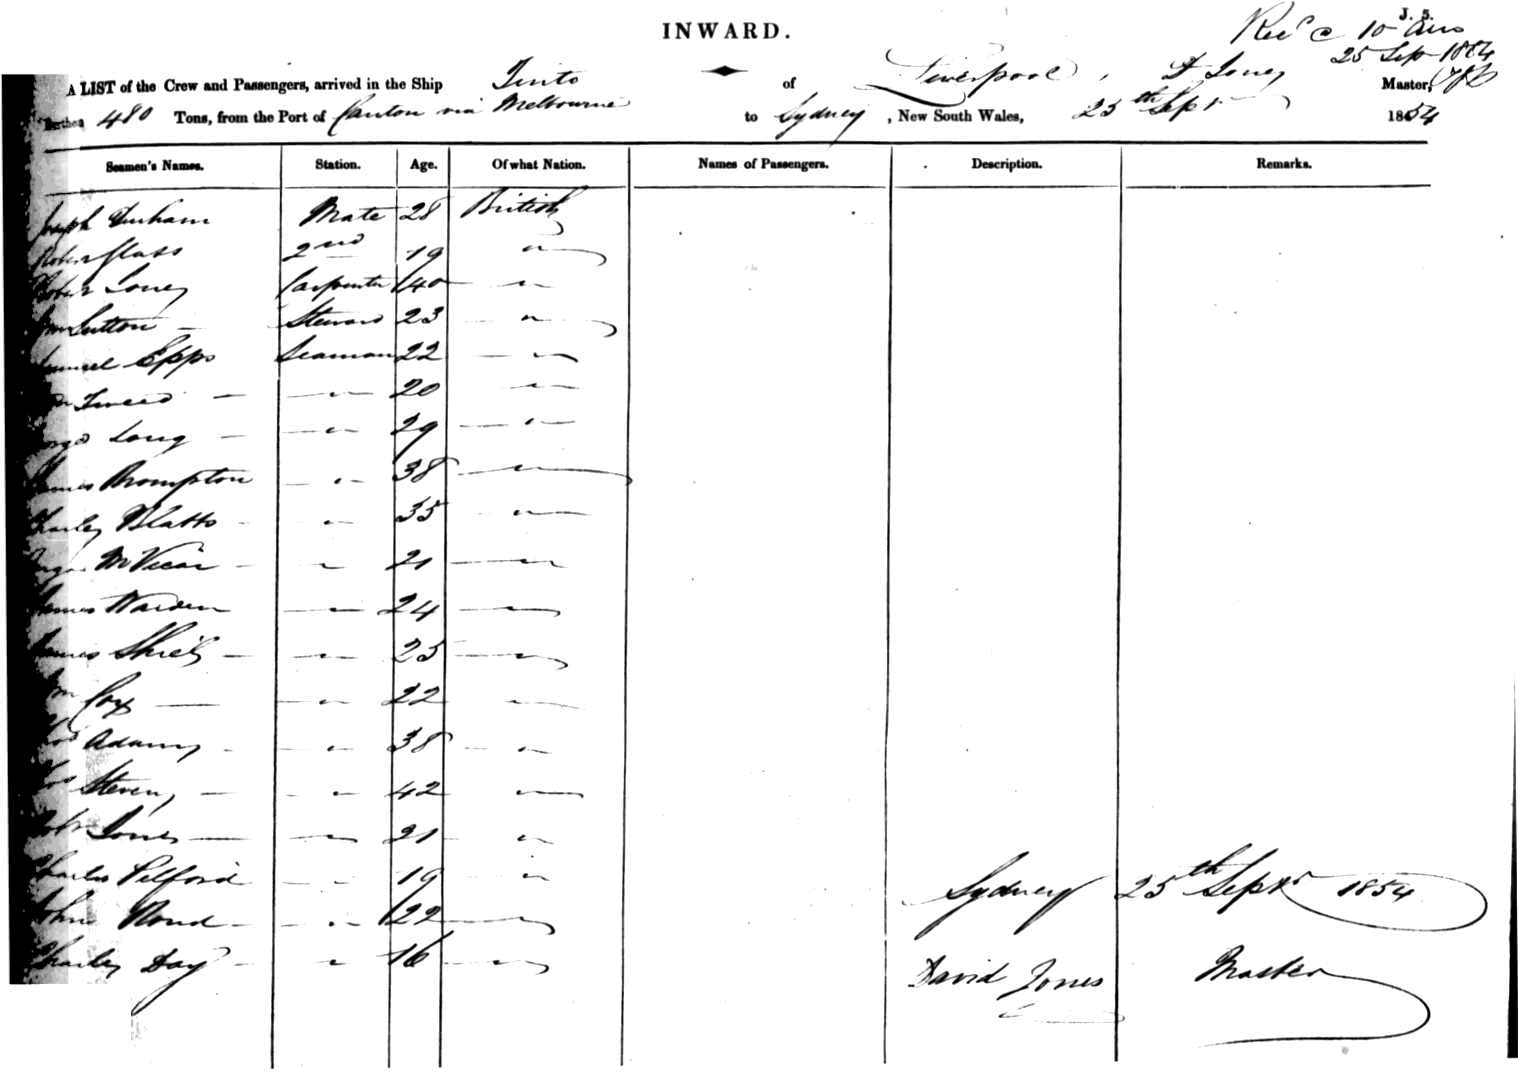 J. 5.
INWARD.
Rec'd 10 am
25 Sep 1854
A LIST of the Crew and Passengers, arrived in the Ship Tinto of Liverpool, D Jones Master,
Burthen 480 Tons, from the Port of Canton via Melbourne to Sydney, New South Wales, 25th Sept 1854
Seamen's Names. Station. Age. Of what Nation. Names of Passengers. Description. Remarks.
Joseph Durham Mate 28 British
Robert Glass 2nd 19 "
Robert Jones Carpenter 40 "
Wm Sutton Steward 23 "
Samuel Epps Seaman 22 "
Wm Tweed " 20 "
George Long " 29 "
James Brompton " 38 "
Charles Blatts " 35 "
McVicar " 21 "
James Warden " 24 "
James Shiels " 25 "
Wm Cox " 22 "
Thos Adams " 38 "
Stevens " 42 "
Jones " 21 "
Charles Pelford " 19 "
John Rond " 22 "
Charles Day " 16 "
Sydney 25th Septr 1854
David Jones Master